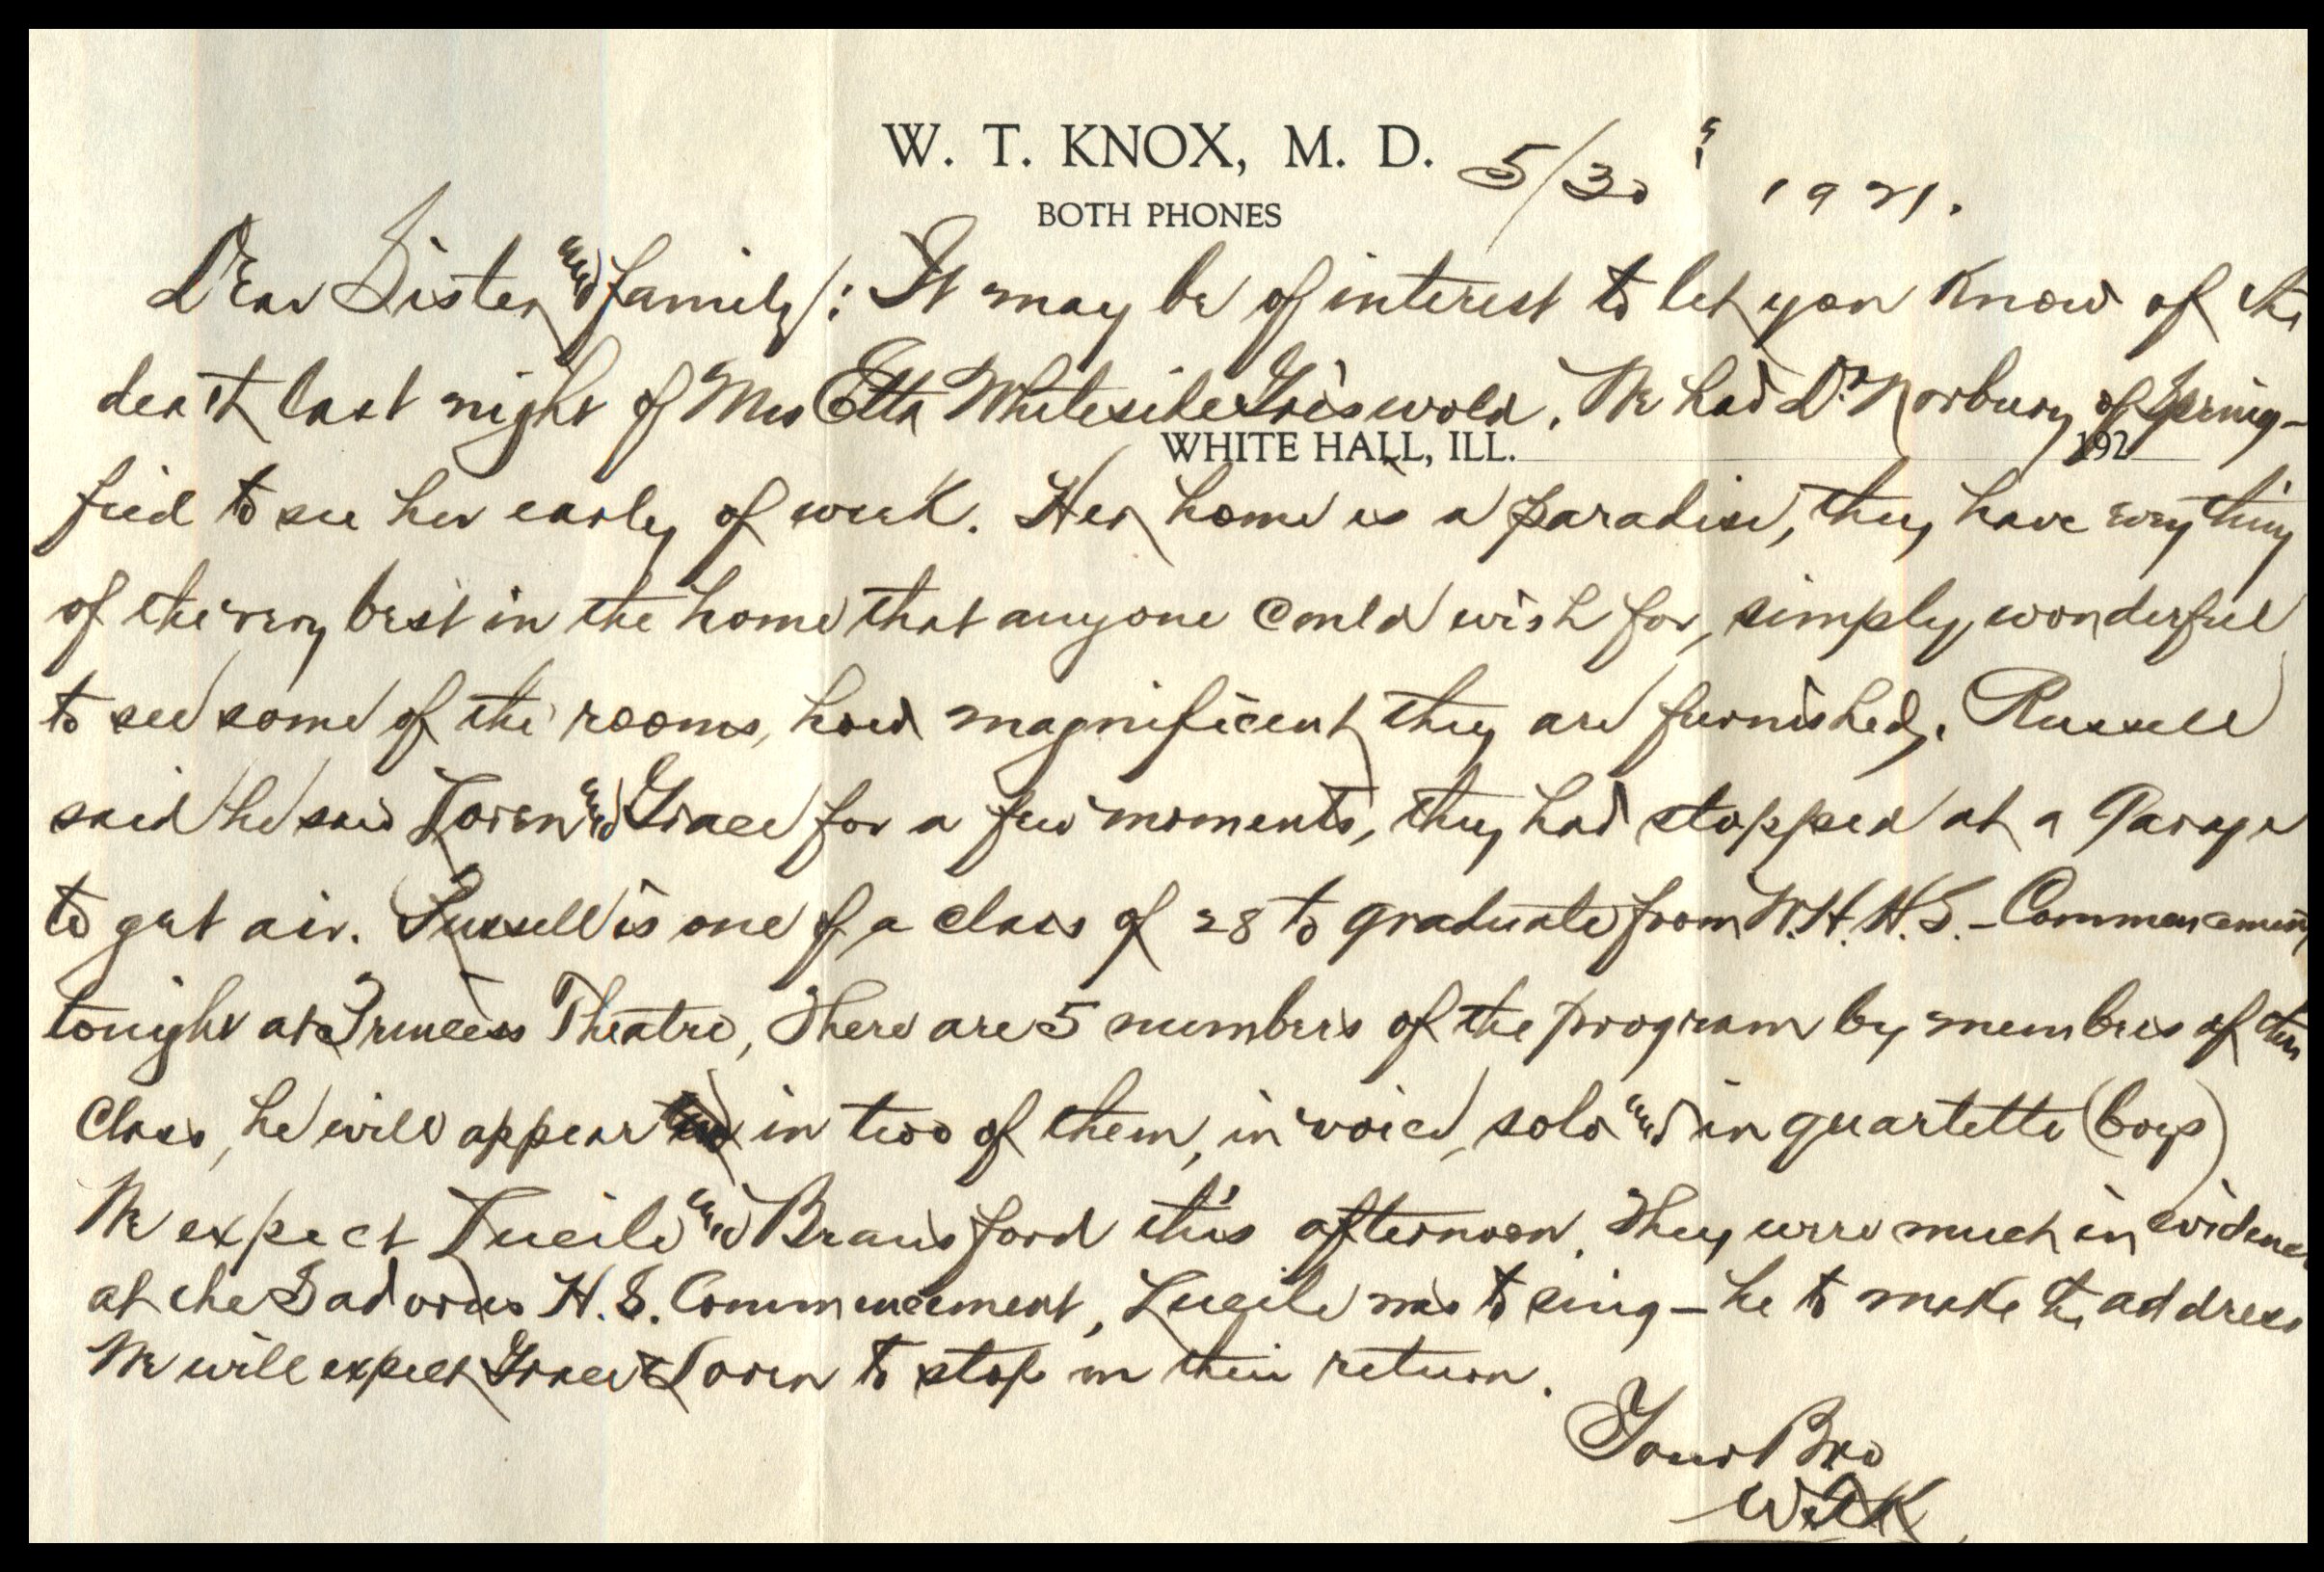 W. T. KNOX, M. D.
BOTH PHONES
5/30 1921.
Dear Sister and family: It may be of interest to let you know of the
death last night of Mrs Etta Whiteside Griswold. We had Dr Norbury of Spring-
WHITE HALL, ILL. 192
fied to see her early of week. Her home is a paradise, they have everything
of the very best in the home that anyone could wish for, simply wonderful
to see some of the rooms, how magnificent they are furnished. Russell
said he saw Loren and Grace for a few moments, they had stopped at a Garage
to get air. Russell is one of a class of 28 to graduate from W.H.H.S. - Commencement
tonight at Princess Theatre, There are 5 numbers of the program by members of the
Class, he will appear in two of them, in voice, solo and in quartette (boys)
We expect Lucile and Bransford this afternoon. They were much in evidence
at the Sadorus H.S. Commencement, Lucile was to sing - he to make the address
We will expect Grace & Loren to stop on their return.
Your Bro
WTK